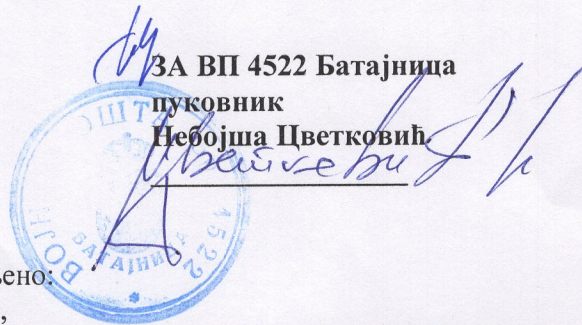 ЗА ВП 4522 Батајница
пуковник
Небојша Цветковић
ПОШТА
4522
БАТАЈНИЦА
ено: